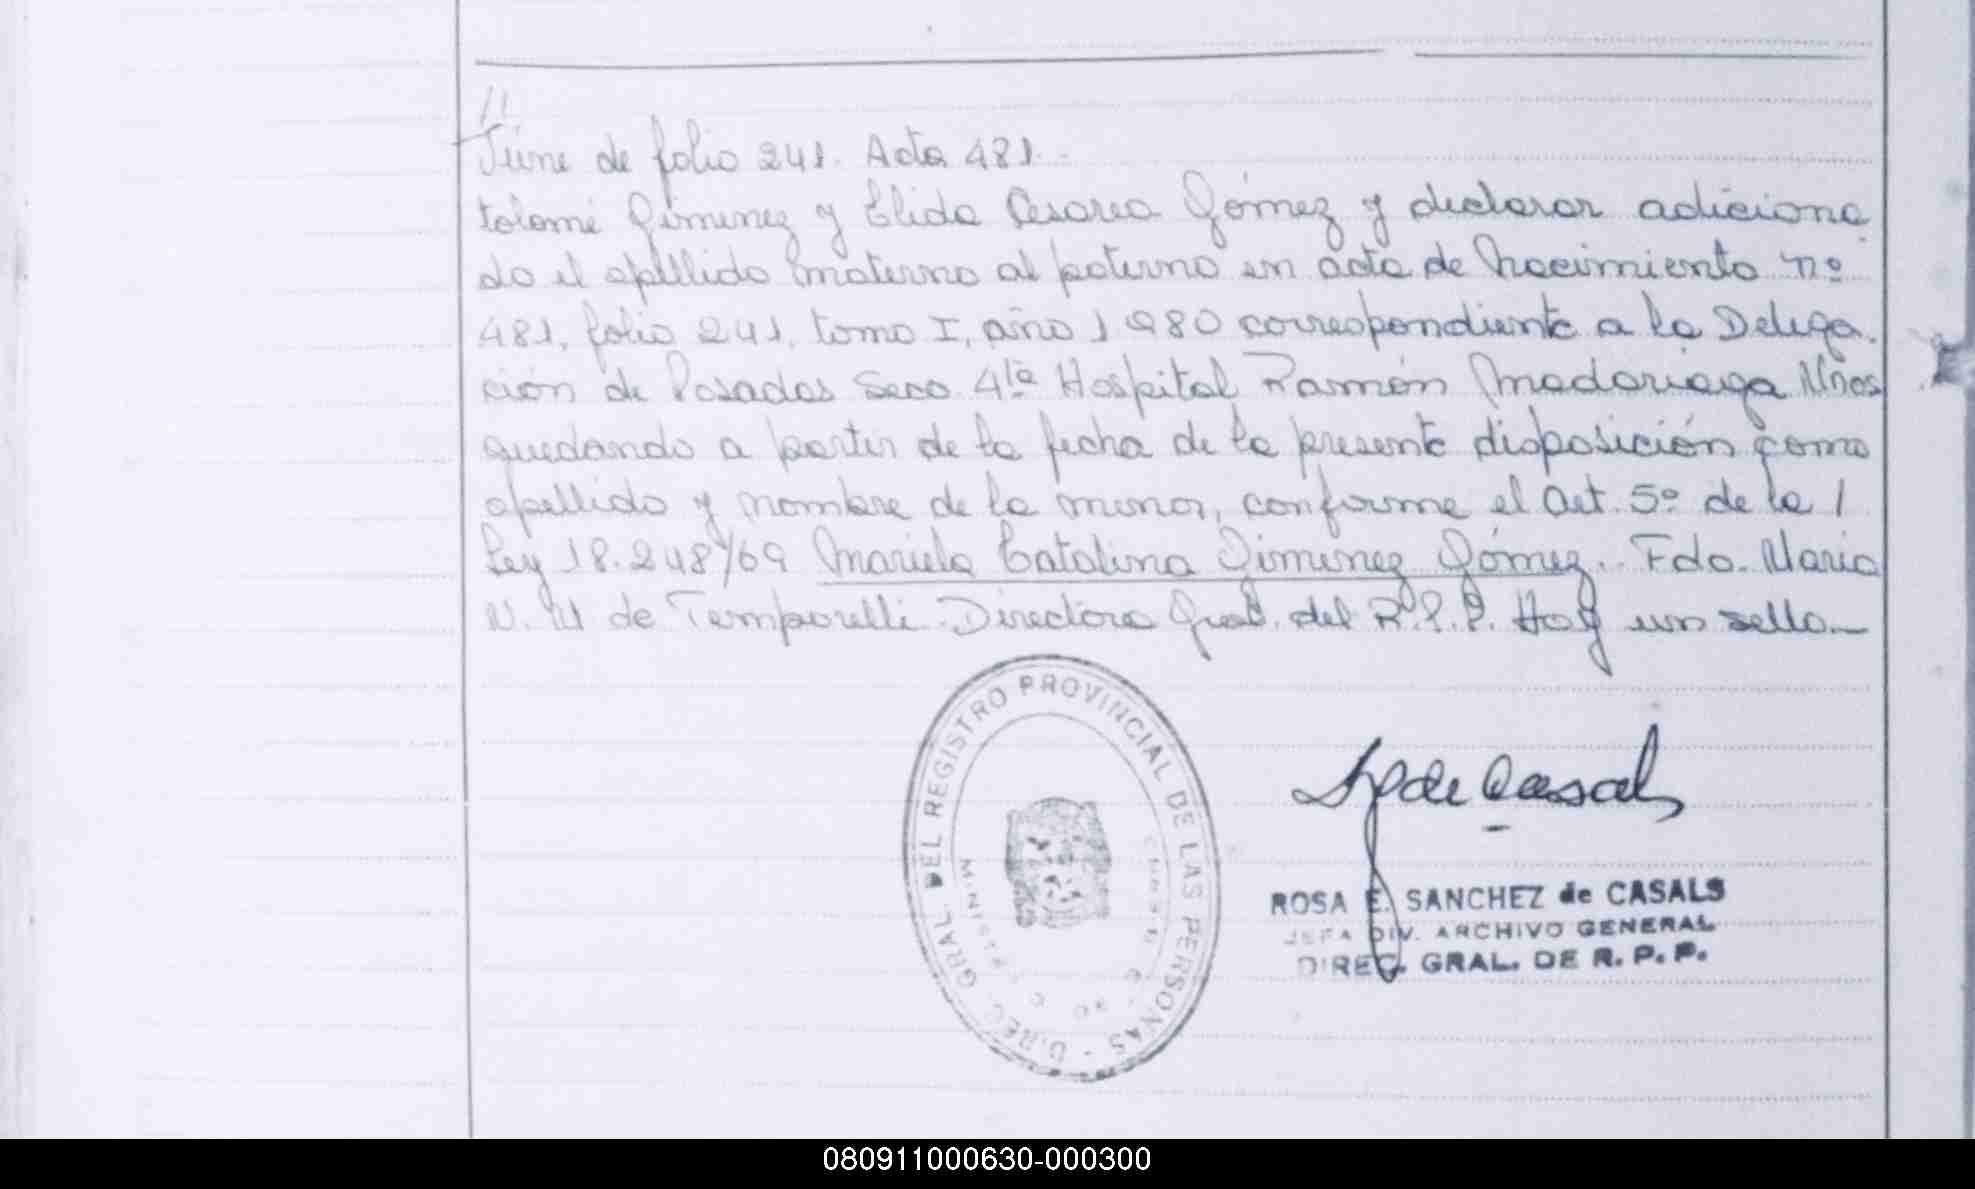 //
Viene de folio 241. Acta 481.-
tolomé Gimenez y Elida Cesarea Gómez y declarar adiciona
do el apellido materno al paterno en acta de Nacimiento nº
481, folio 241, tomo I, año 1980 correspondiente a la Delega.
ción de Posadas Secc. 4ta Hospital Ramón Madariaga Mnes
quedando a partir de la fecha de la presente disposición como
apellido y nombre de la menor, conforme el Art. 5º de la /
Ley 18.248/69 Mariela Catalina Gimenez Gómez. Fdo. Maria
N. M de Temporelli. Directora Gral. del R.P.P. Hay un sello.—
DIREC. GRAL. DEL REGISTRO PROVINCIAL DE LAS PERSONAS -
MINISTERIO
de Casals
ROSA E. SANCHEZ de CASALS
JEFA DIV. ARCHIVO GENERAL
DIREC. GRAL. DE R. P. P.
080911000630-000300